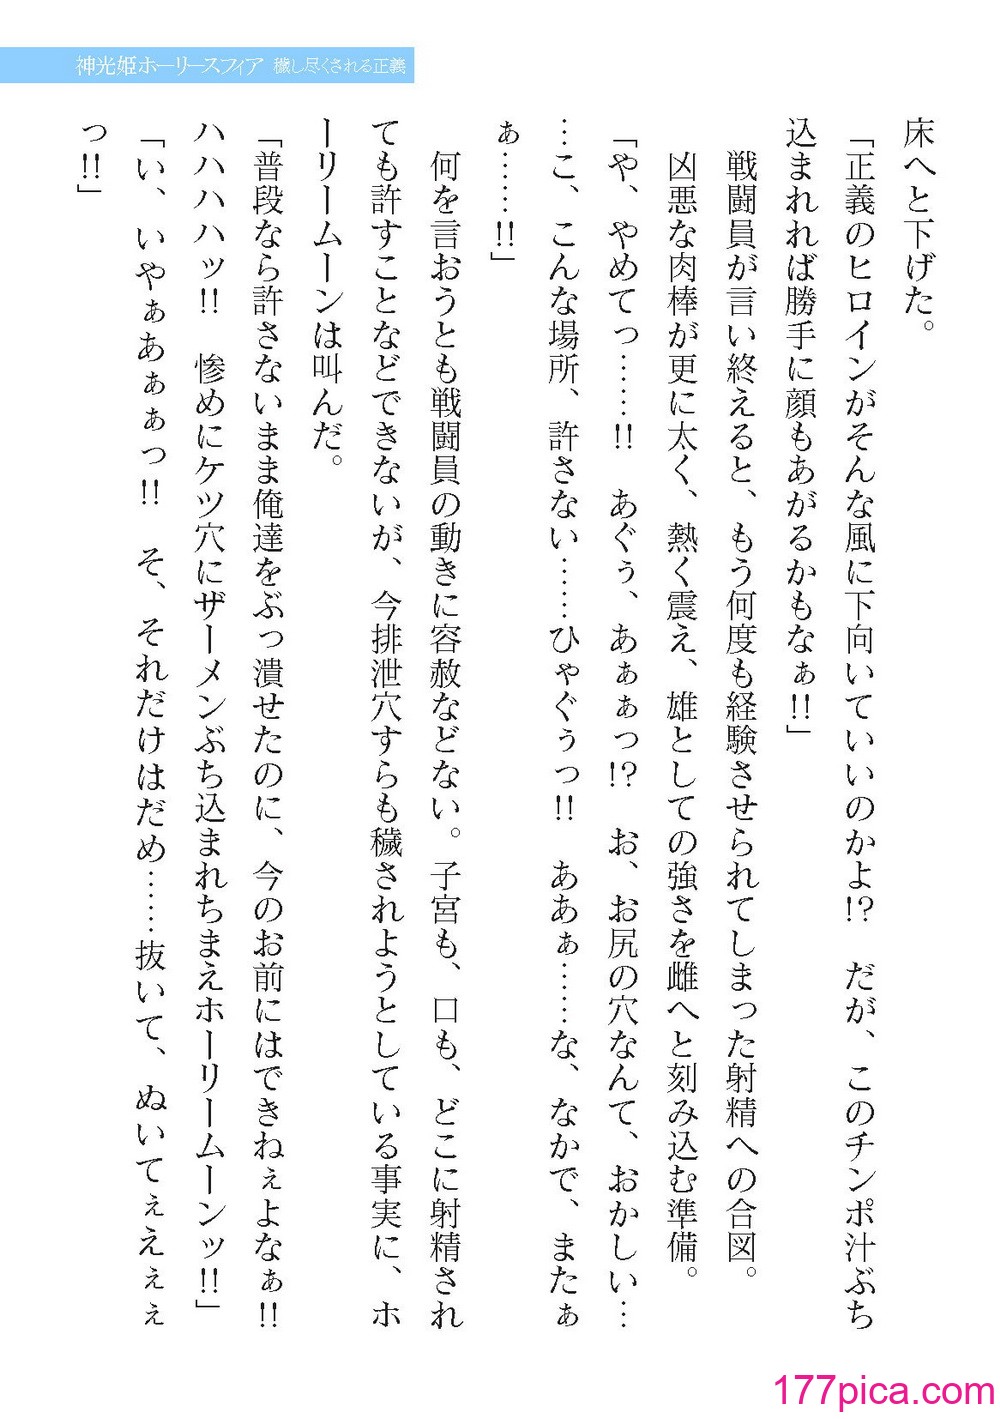 神光姫ホーリースフィア 穢し尽くされる正義
床へと下げた。
「正義のヒロインがそんな風に下向いていいのかよ!?　だが、このチンポ汁ぶち
込まれれば勝手に顔もあがるかもなぁ!!」
　戦闘員が言い終えると、もう何度も経験させられてしまった射精への合図。
　凶悪な肉棒が更に太く、熱く震え、雄としての強さを雌へと刻み込む準備。
「や、やめてっ……!!　あぐぅ、あぁぁっ!?　お、お尻の穴なんて、おかしい…
…こ、こんな場所、許さない……ひゃぐぅっ!!　ああぁ……な、なかで、またぁ
ぁ……!!」
　何を言おうとも戦闘員の動きに容赦などない。子宮も、口も、どこに射精され
ても許すことなどできないが、今排泄穴すらも穢されようとしている事実に、ホ
ーリームーンは叫んだ。
「普段なら許さないまま俺達をぶっ潰せたのに、今のお前にはできねぇよなぁ!!
ハハハハッ!!　惨めにケツ穴にザーメンぶち込まれちまえホーリームーンッ!!」
「い、いやぁあぁぁっ!!　そ、それだけはだめ……抜いて、ぬいてぇええぇぇ
っ!!」
177pica.com